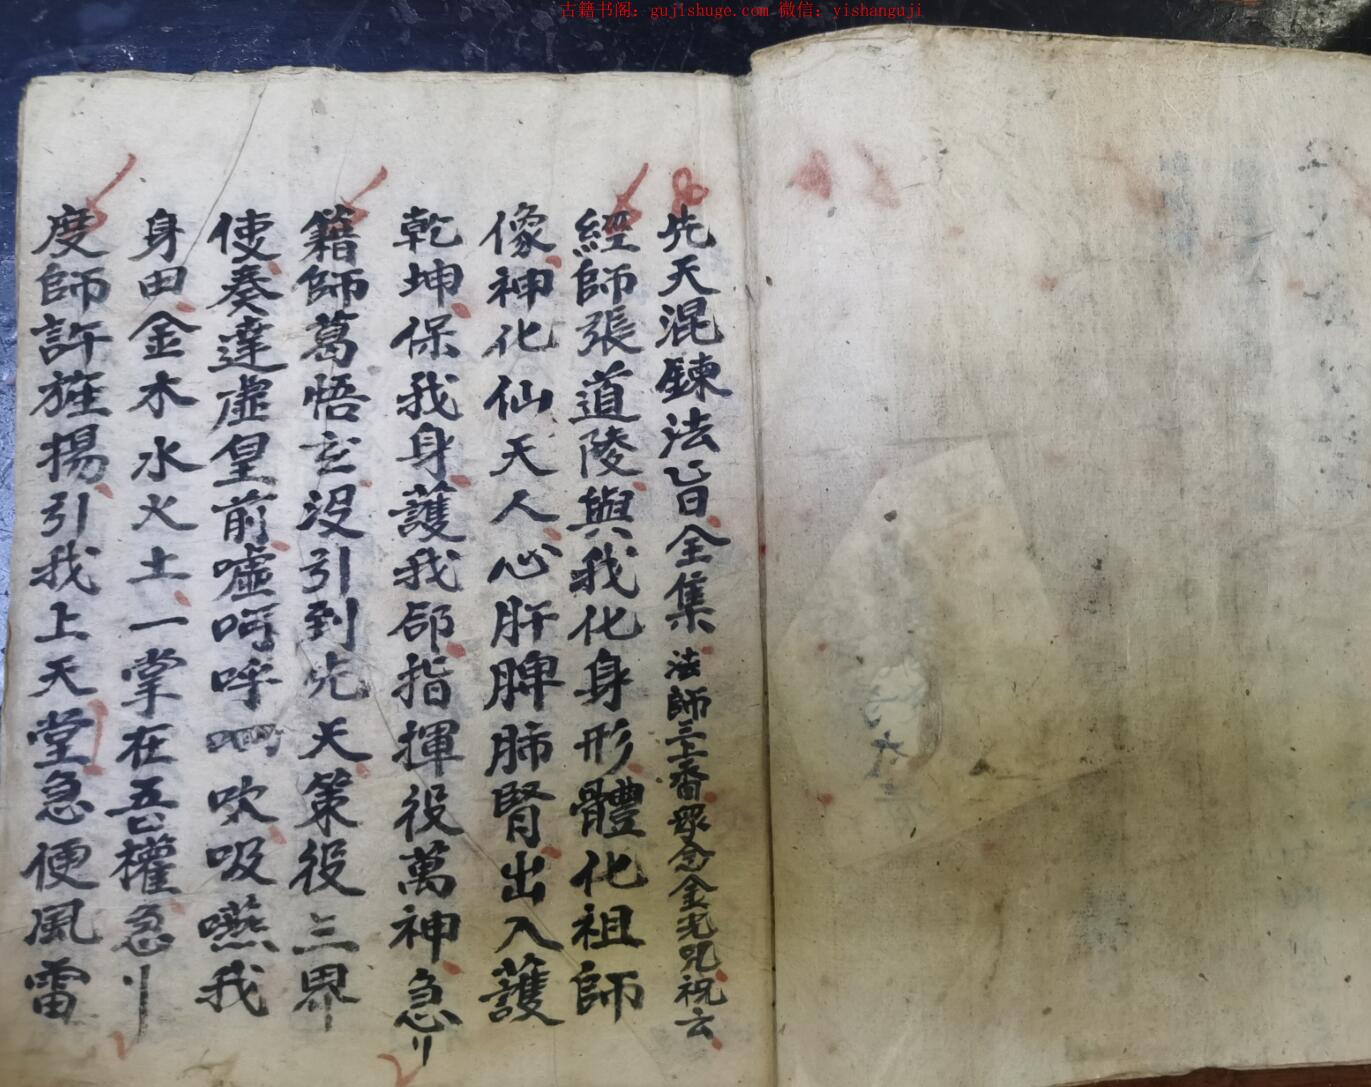 古籍书阁：gujishuge.com 微信：yishanguji
先天混鍊法旨全集 法師三上香畢念金光咒祝云
經師張道陵與我化身形體化祖師
像神化仙天人心肝脾肺腎出入護
乾坤保我身護我命指揮役萬神急刂
籍師葛悟玄没引到先天策役三界
使奏達虛皇前噓呵呼呬吹吸嚥我
身田金木水火土一掌在吾權急刂
度師許旌揚引我上天堂急便風雷